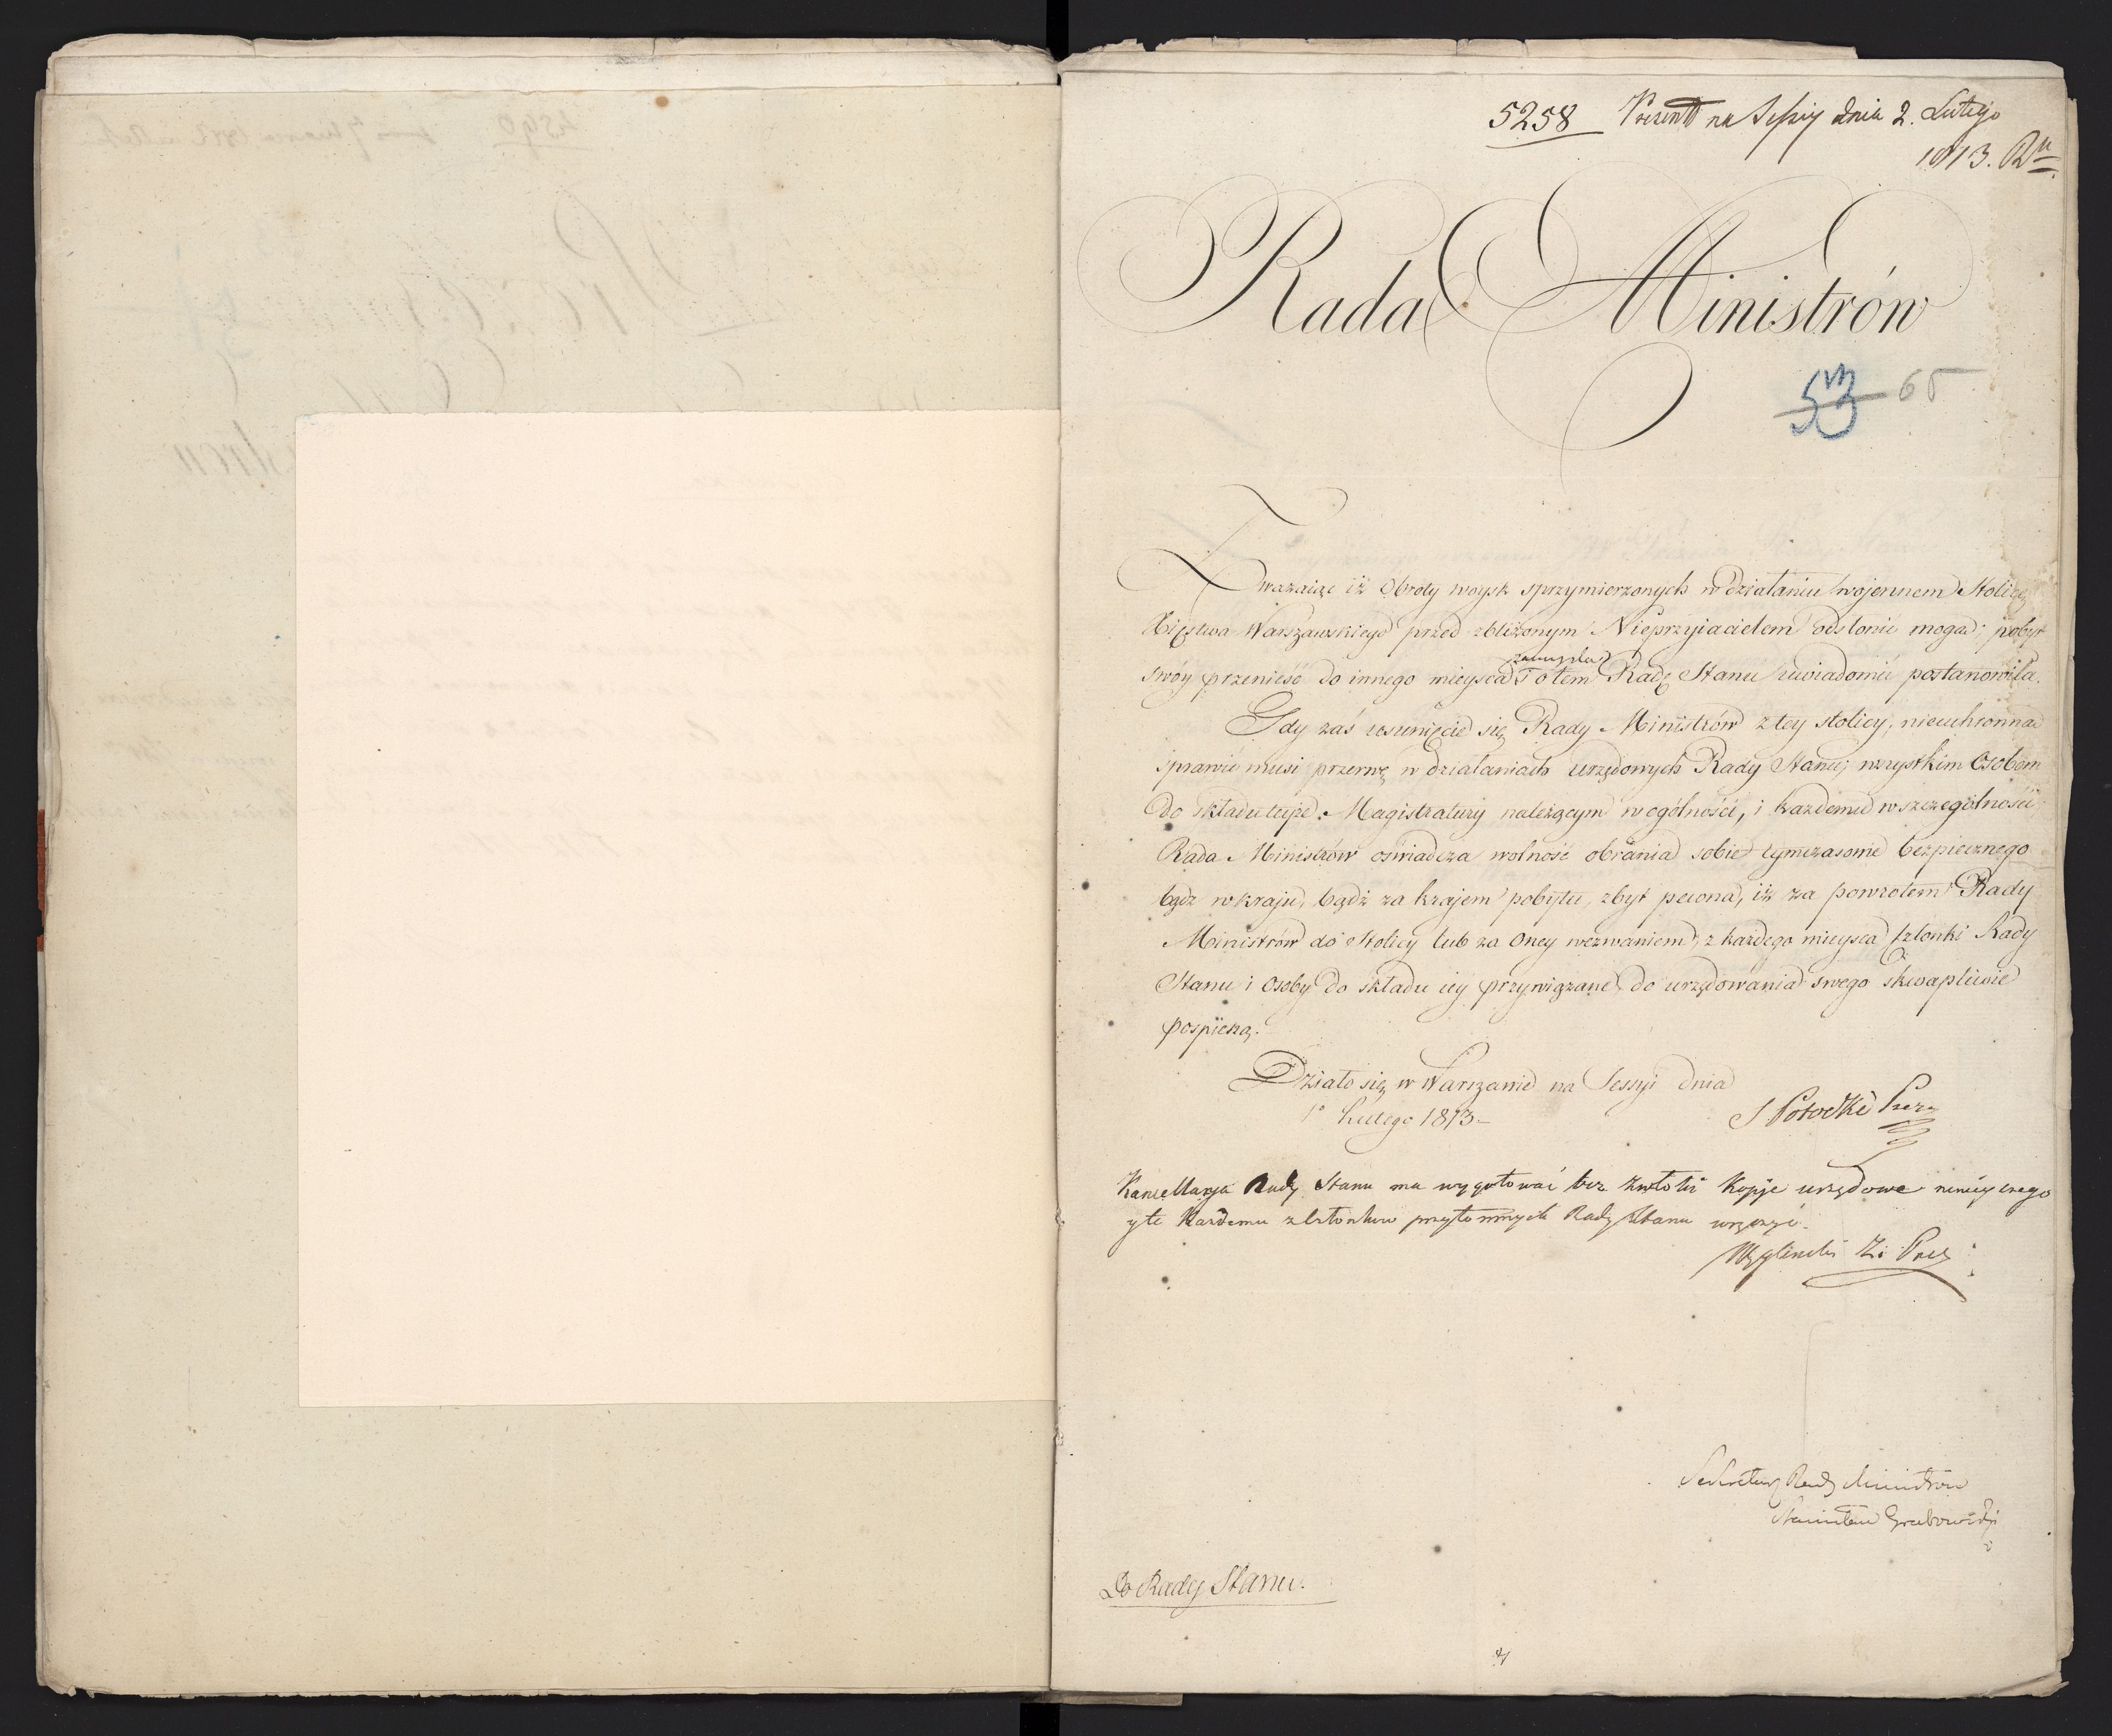 5258 Prezent na Sessyi dnia 2. Lutego
1813. Ru
Rada Ministrów
53 65
Zważaiąc iż Obroty woysk sprzymierzonych w działaniu wojennem Stolicę
Xięstwa Warszawskiego przed zbliżonym Nieprzyiacielem odsłonić mogą; pobyt
swóy przenieść do innego mieysca zamyśla i o tem Radę Stanu uwiadomić postanowiła.
Gdy zaś usunięcie się Rady Ministrów z tey stolicy, nieuchronną
sprawić musi przerwę w działaniach urzędowych Rady Stanu; wszystkim Osobom
do składu teyże Magistratury należącym w ogólności, i każdemu w szczególności
Rada Ministrów oświadcza wolność obrania sobie tymczasowie bezpiecznego
bądź w kraju, bądź za krajem pobytu, zbyt pewna, iż za powrotem Rady
Ministrów do Stolicy lub za Oney wezwaniem, z każdego mieysca członki Rady
Stanu i osoby do składu iey przywiązane, do urzędowania swego skwapliwie
pospieszą.
Działo się w Warszawie na Sessyi dnia
1o Lutego 1813 –
S Potocki Prez
Kancellarya Rady Stanu ma wygotować bez zwłoki Kopje urzędowe ninieyszego
y te Każdemu z Członków przytomnych Rady Stanu wręczyć.
Węgliński Z. Prez
Sekretarz Rady Ministrów
Stanisław Grabowski
Do Rady Stanu.